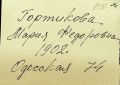 Гортикова
Мария Федоровна
1902.
Одесская 74